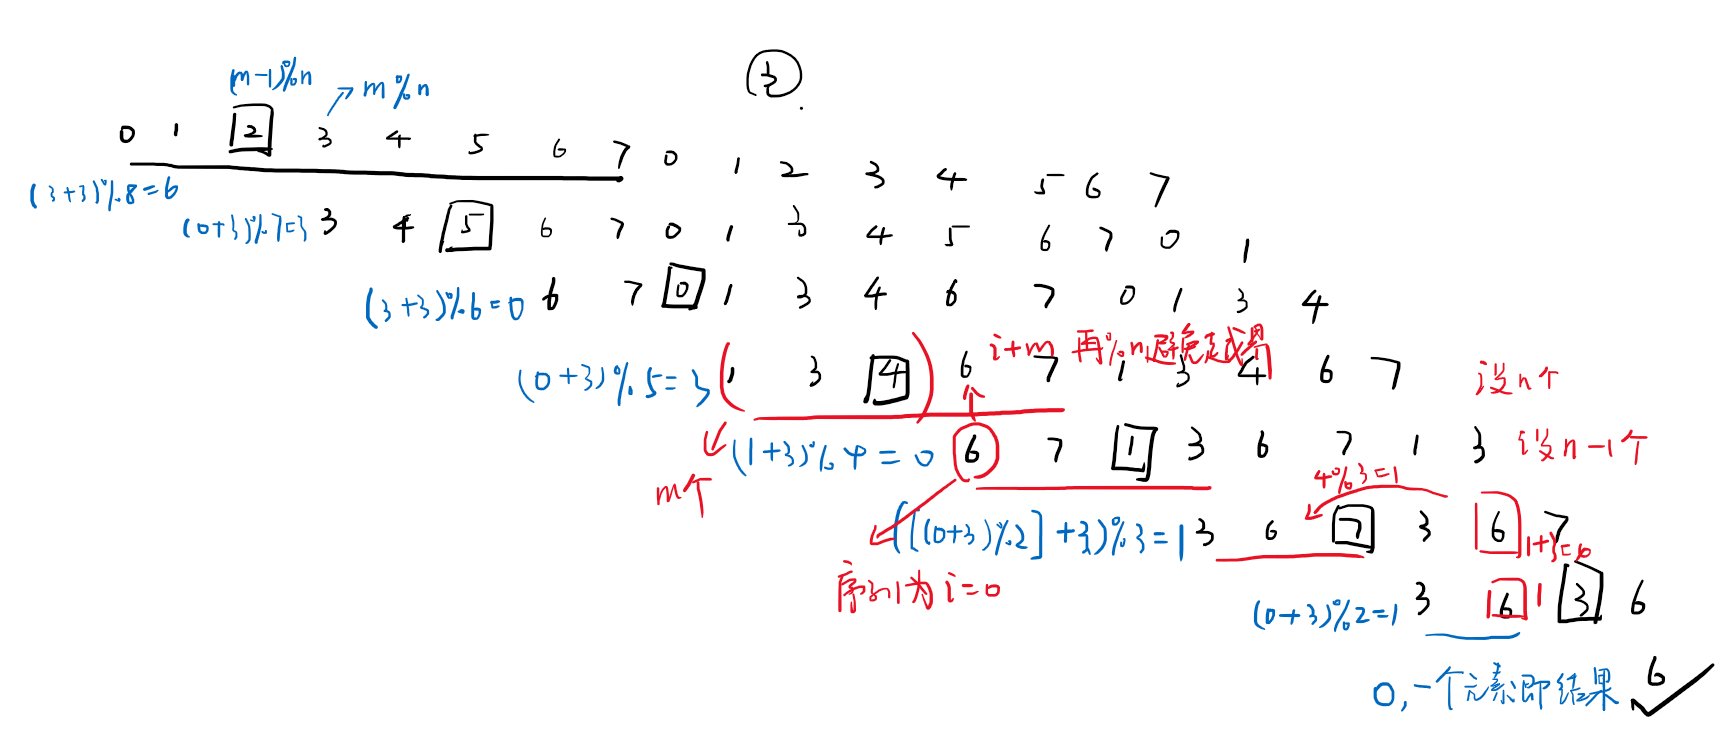 3
(m-1)%n
m%n
0 1 2 3 4 5 6 7 0 1 2 3 4 5 6 7
(3+3)%8=6
(0+3)%7=3 3 4 5 6 7 0 1 3 4 5 6 7 0 1
(3+3)%6=0 6 7 0 1 3 4 6 7 0 1 3 4
i+m 再%n避免越界
(0+3)%5=3 (1 3 4) 6 7 1 3 4 6 7 设n个
(1+3)%4=0 6 7 1 3 6 7 1 3 设n-1个
m个
4%3=1
([(0+3)%2]+3)%3=1 3 6 7 3 6 7
序列为i=0
(0+3)%2=1 3 6 1 3 6
0,一个元素即结果 6